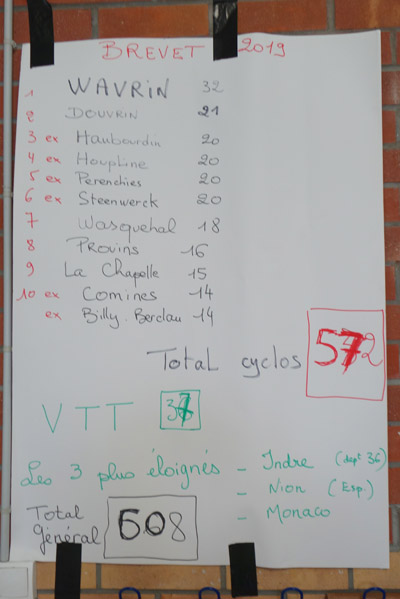 BREVET 2019
1 WAVRIN 32
2 DOUVRIN 21
3 ex Haubourdin 20
4 ex Houpline 20
5 ex Perenchies 20
6 ex Steenwerck 20
7 Wasquehal 18
8 Provins 16
9 La Chapelle 15
10 ex Comines 14
ex Billy-Berclau 14
Total cyclos 572
VTT
Les 3 plus éloignés - Indre (dept 36)
- Nion (Esp.)
- Monaco
Total
Général 608